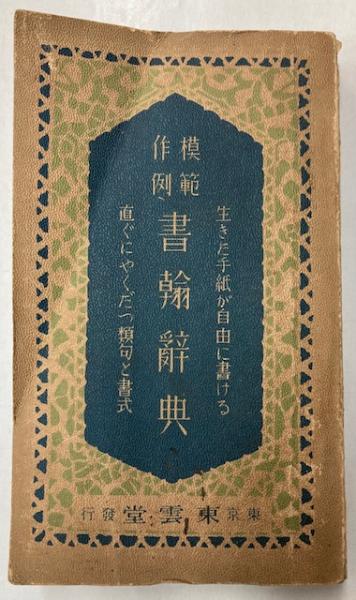 生きた手紙が自由に書ける
模範
作例
書翰辭典
直ぐにやくだつ類句と書式
東京 東雲堂 發行